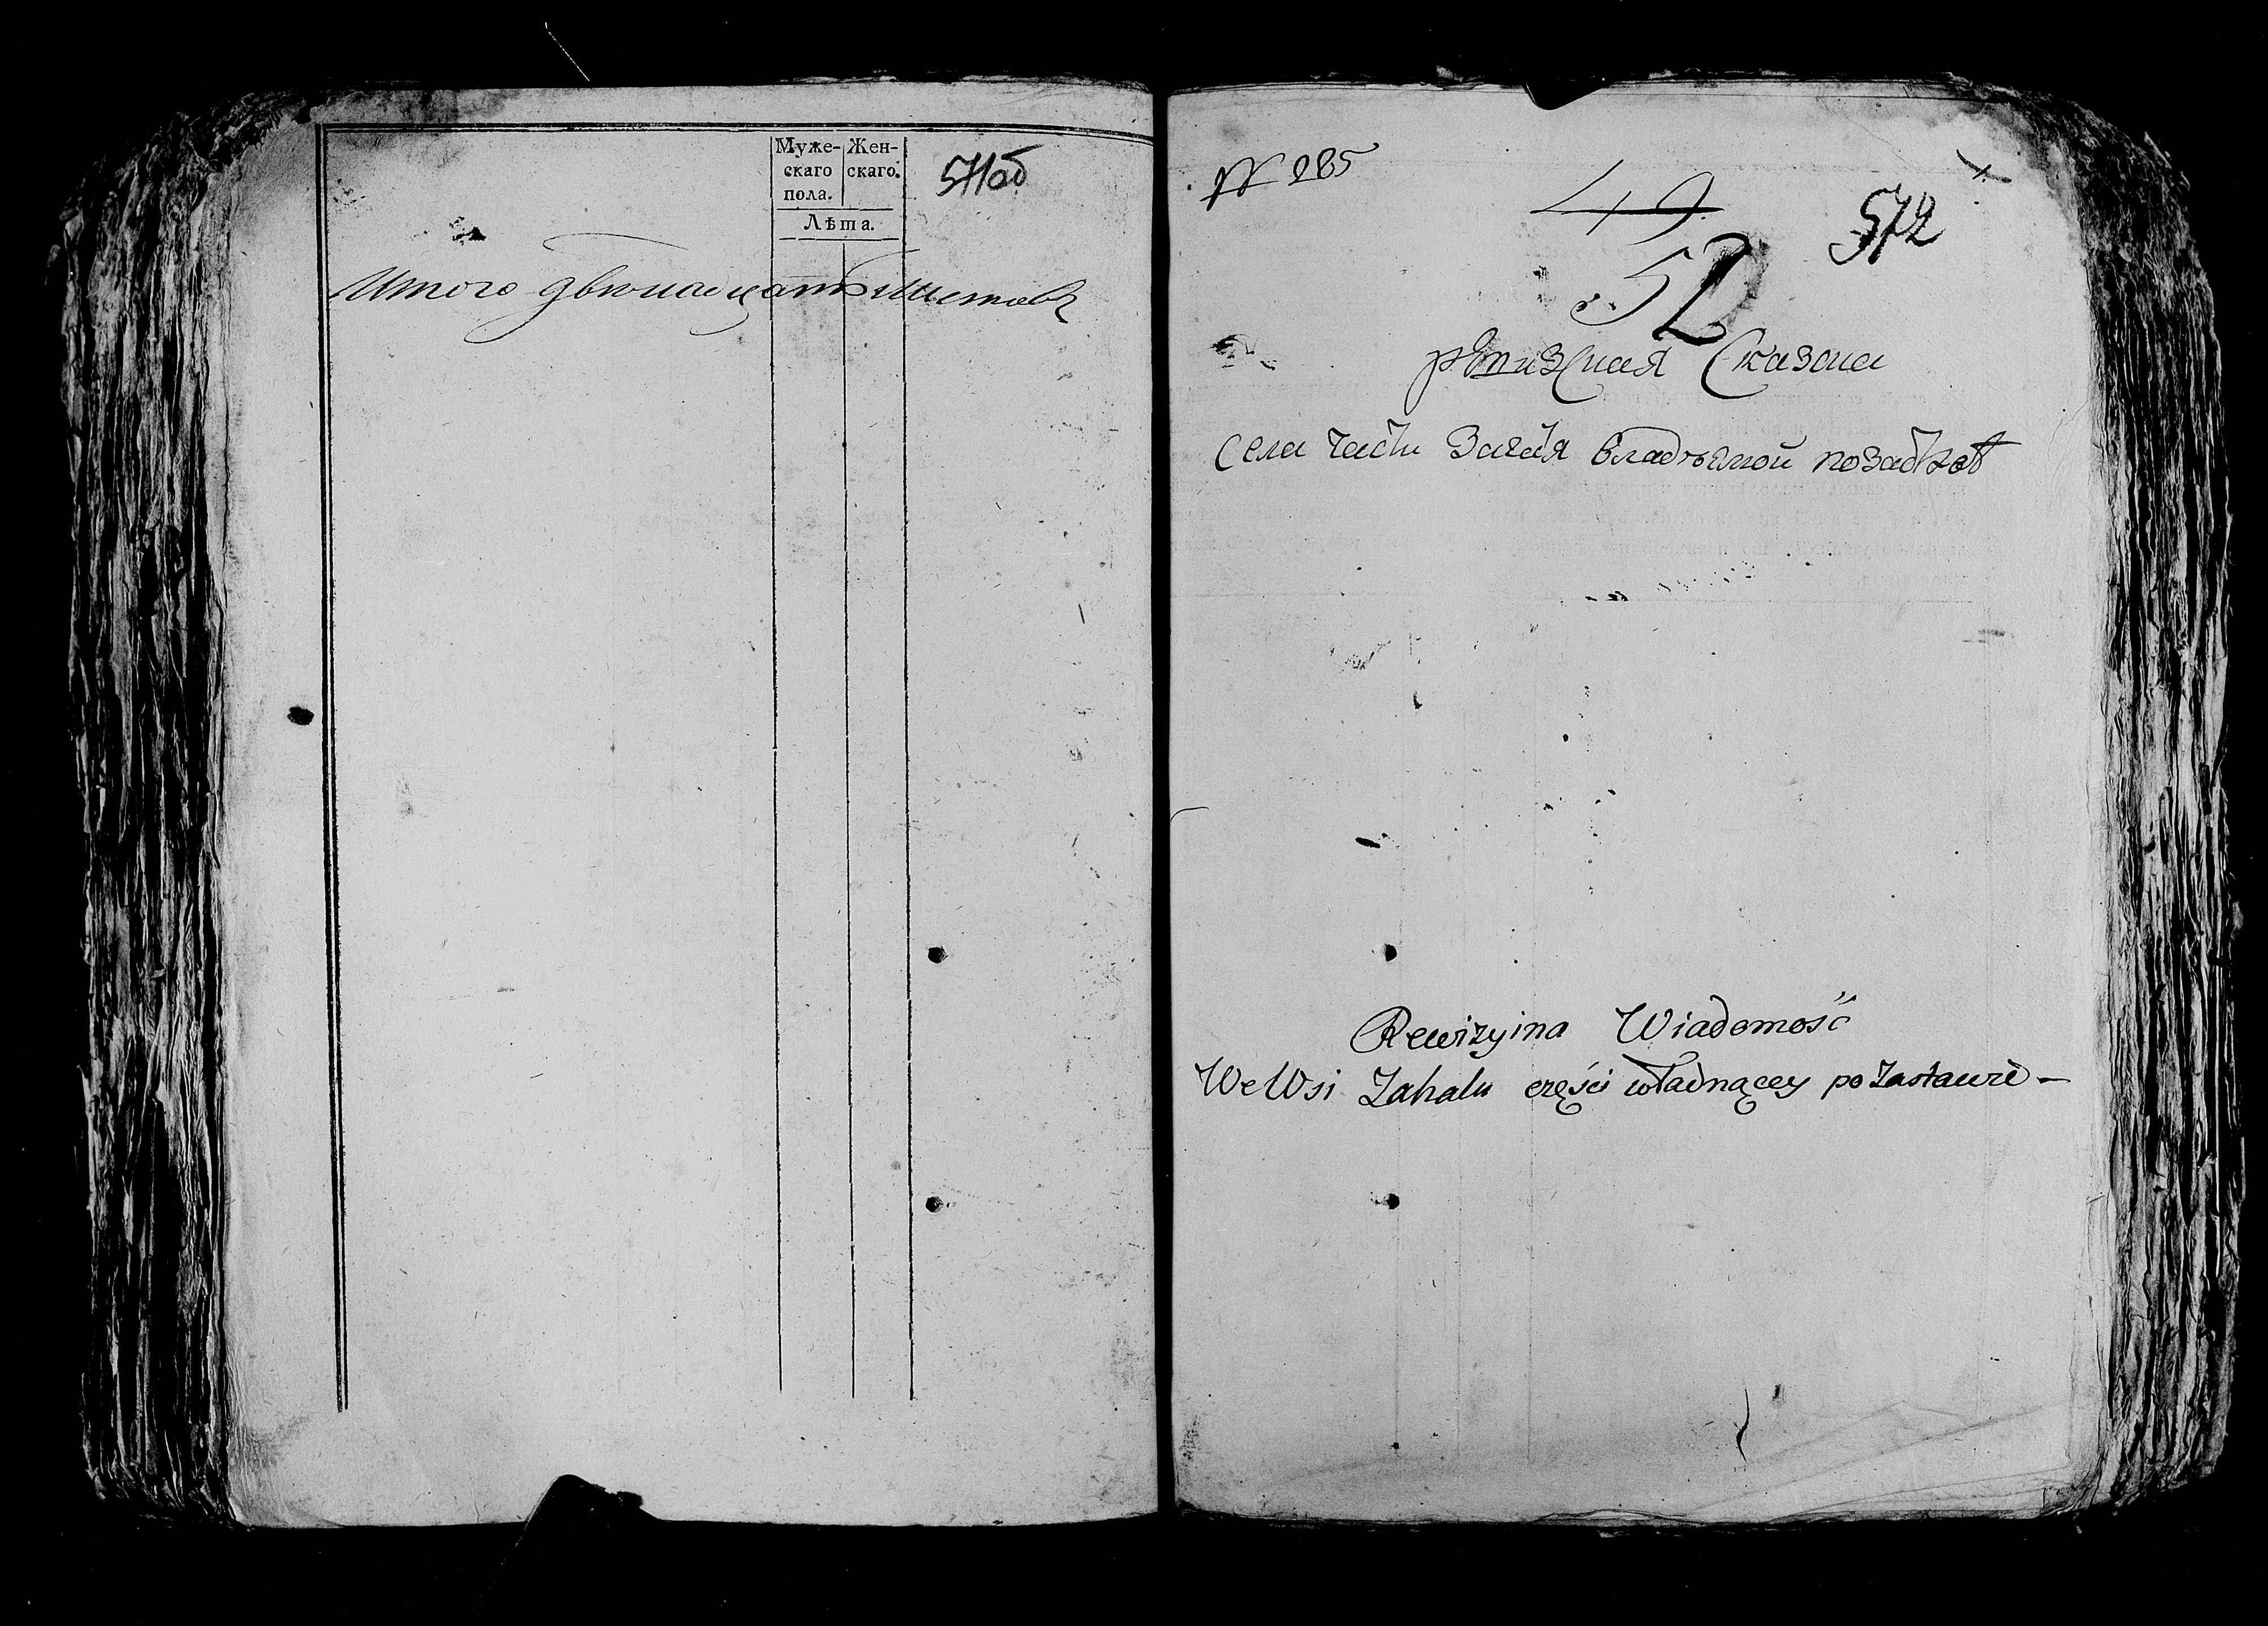 Муже- Жен-
скаго скаго.
пола.
Лѣта.
571об
Итого двенадцать листовъ
№ 285
49
572
52
ревизская Сказка
Села части Загаля владѣемой
Rewizyina Wiadomość
We Wsi Zahalu części władnącey po Zastawie -